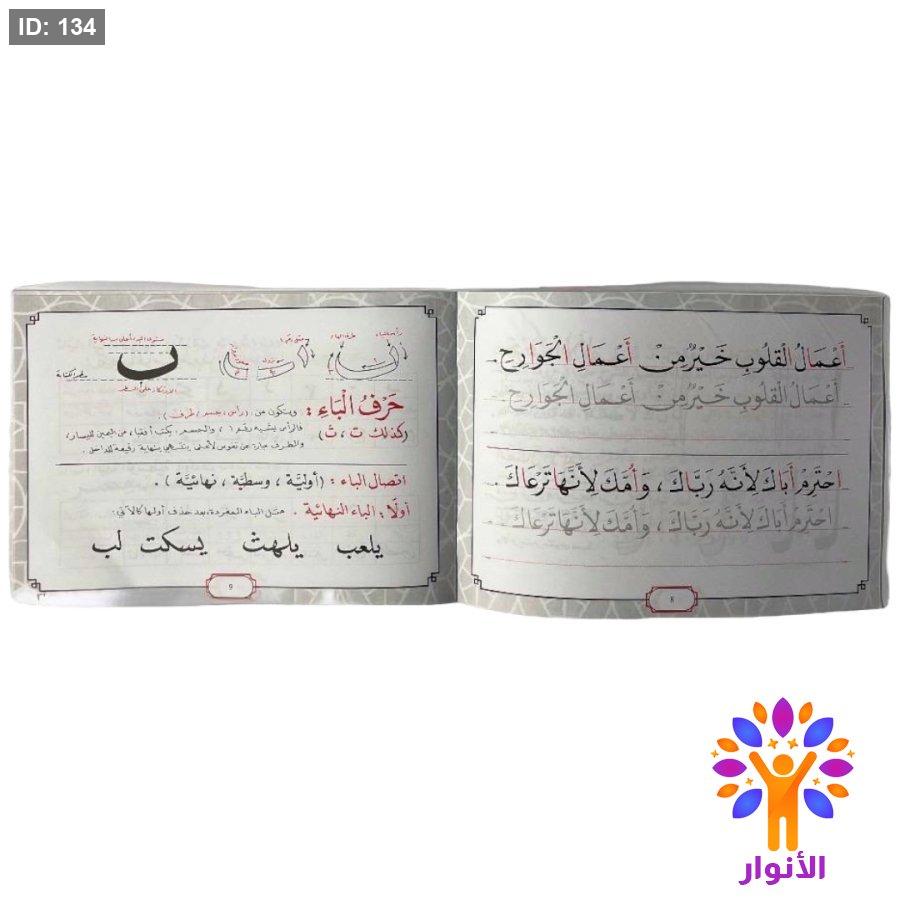 ID: 134
أَعْمَالُ الْقُلُوبِ خَيْرٌ مِنْ أَعْمَالِ الْجَوَارِحِ
أَعْمَالُ الْقُلُوبِ خَيْرٌ مِنْ أَعْمَالِ الْجَوَارِحِ
احْتَرِمْ أَبَاكَ لِأَنَّهُ رَبَّاكَ ، وَأُمَّكَ لِأَنَّهَا تَرْعَاكَ
احْتَرِمْ أَبَاكَ لِأَنَّهُ رَبَّاكَ ، وَأُمَّكَ لِأَنَّهَا تَرْعَاكَ
8
حَرْفُ الْبَاءِ : ويتكون من (رأس ، جسم ، طرف) .
(كذلك ت ، ث) فالرأس يشبه رقم ١ ، والجسم يكتب أفقيا من اليمين لليسار ،
والطرف عبارة عن تقوس لأعلى ينتهي بنهاية رفيعة للداخل .
اتصال الباء : (أوليَّة ، وسطيَّة ، نهائيَّة) .
أولًا : الباء النهائية . مثل الباء المفردة بعد حذف أولها كالآتي :
يلعب يلهث يسكت لب
9
الأنوار